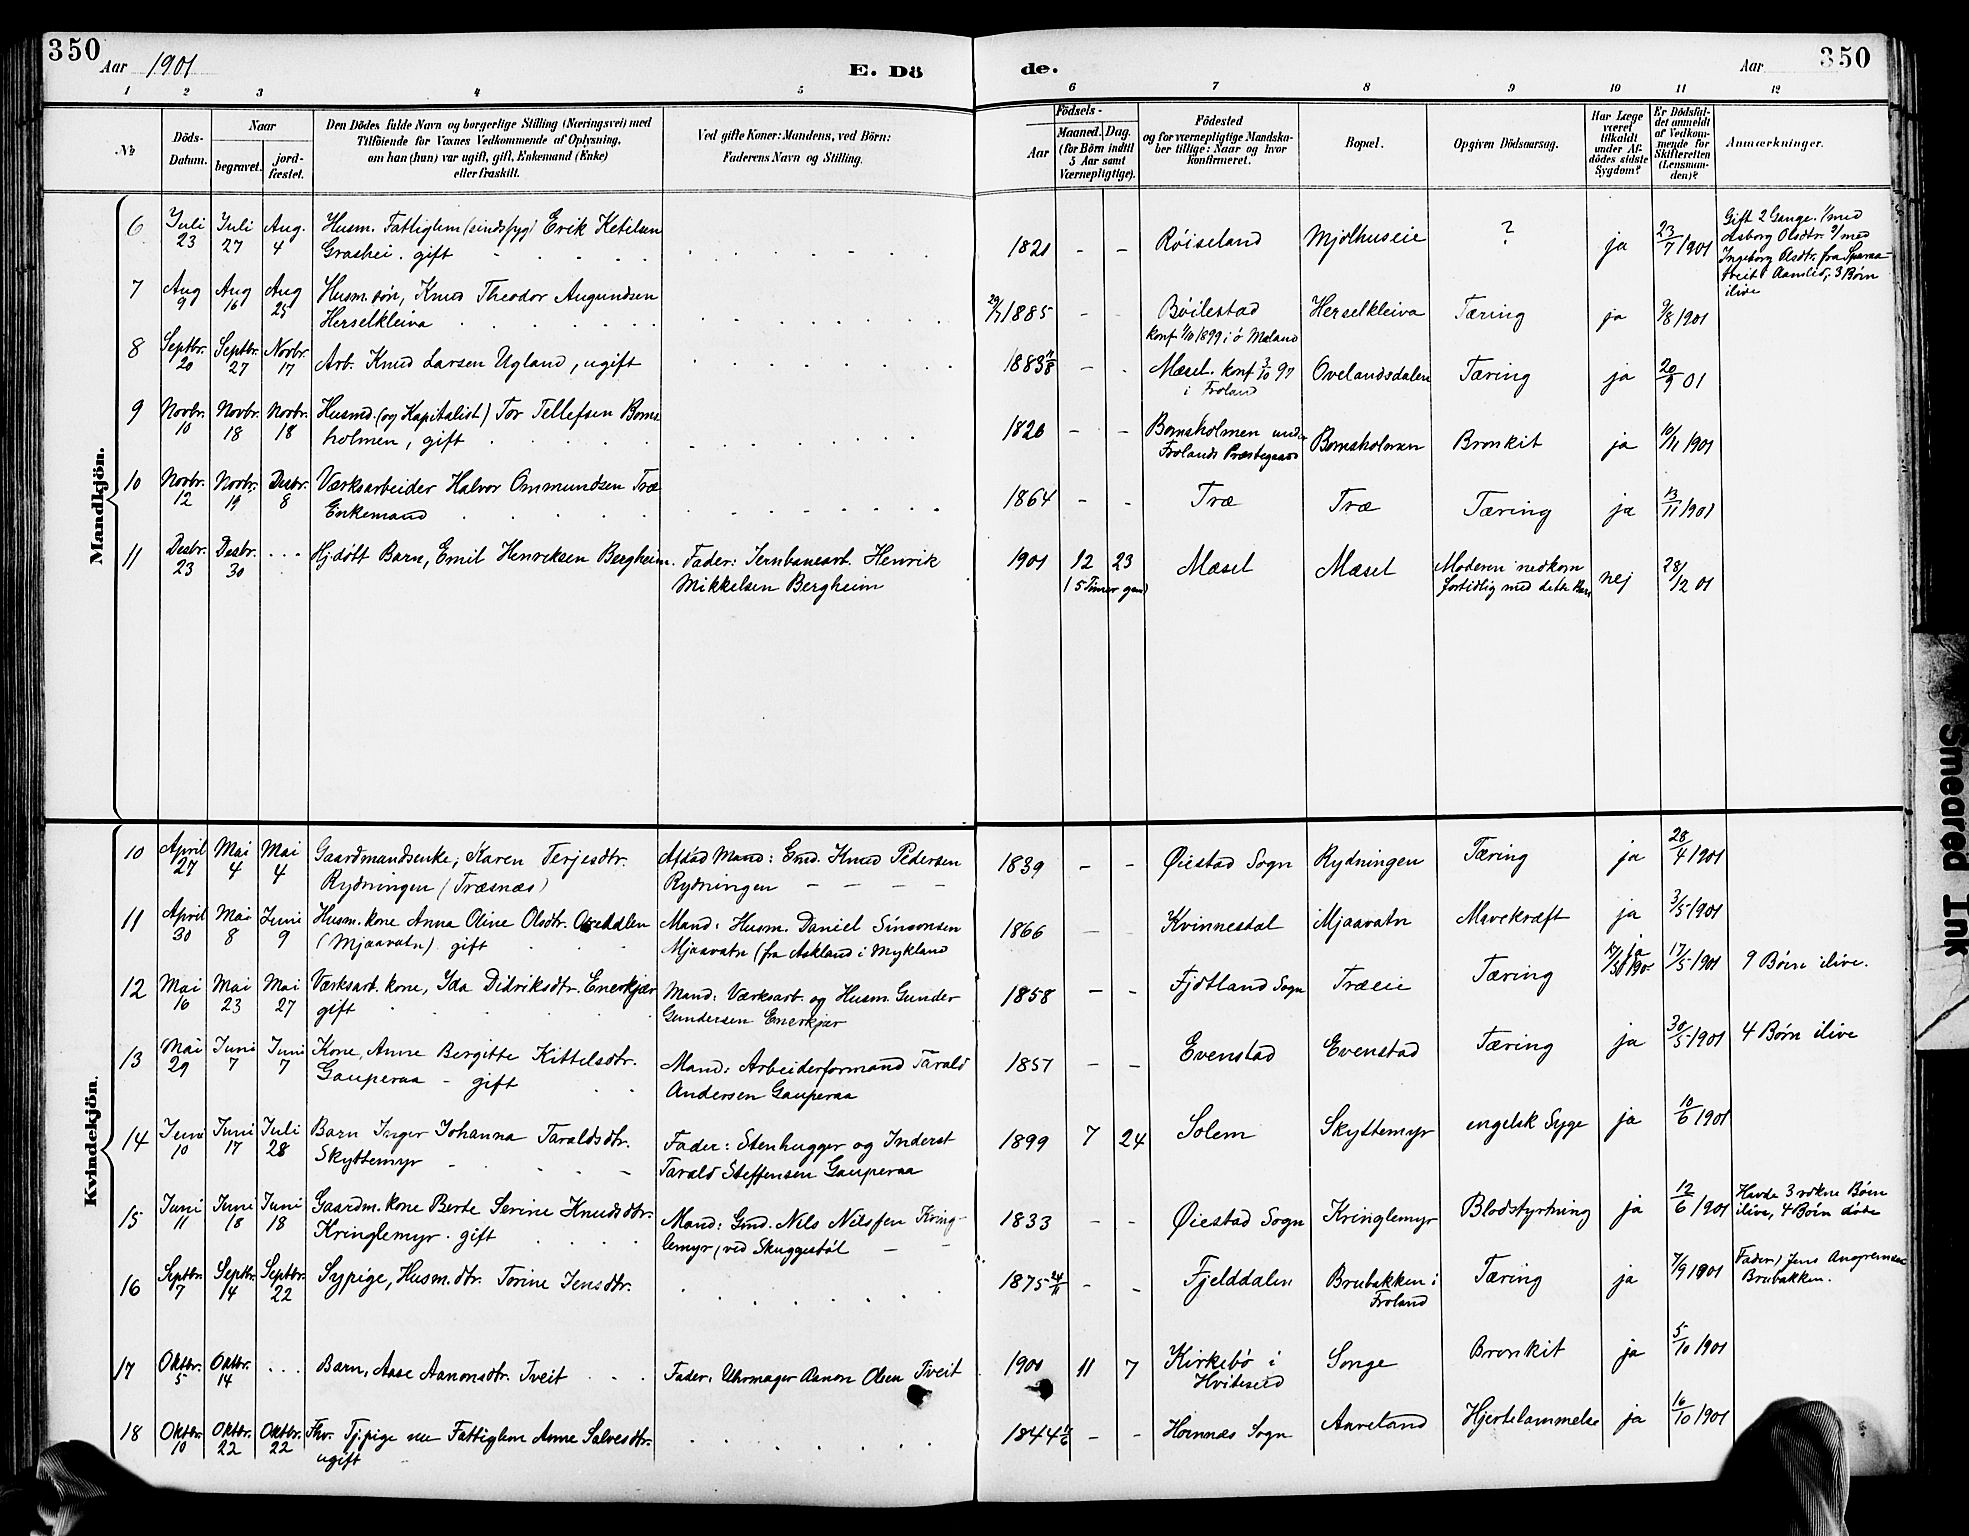 350
Aar 1901
E. Dö
de.
Aar
350
1 2 3 4 5 6 7 8 9 10 11 12
No
Döds-Datum.
Naar
begravet.
jord-fæstet.
Den Dödes fulde Navn og borgerlige Stilling (Næringsvei) med
Tilföiende for Voxnes Vedkommende af Oplysning,
om han (hun) var ugift, gift, Enkemand (Enke)
eller fraskilt.
Ved gifte Koner: Mandens, ved Börn:
Faderens Navn og Stilling.
Födsels-
Aar
Maaned. Dag.
(for Börn indtil
5 Aar samt
Værnepligtige).
Födested
og for værnepligtige Mandska-
ber tillige: Naar og hvor
konfirmeret.
Bopæl.
Opgiven Dödsaarsag.
Har Læge
været
tilkaldt
under Af-
dödes sidste
Sygdom?
Er Dödsfal-
det anmeldt
af Vedkom-
mende for
Skifteretten
(Lensman-
den)?
Anmærkninger.
Mandkjön.
6 Juli 23 Juli 27 Aug. 4 Husm. Fattiglem (sindssyg) Erik Ketilsen
Grashei. gift
1821 - - Røiseland Mjølhuseie ? ja 23/7 1901
Gift 2 Gange. 1/ med
Asborg Olsdtr. 2/ med
Ingeborg Olsdtr. fra
tveit i Aamlid, 3 Børn
ilive
7 Aug 9 Aug 16 Aug 25 Husm.søn, Knud Theodor Augundsen
Herselkleiva
29/7 1885 - - Bøilestad Herselkleiva Tæring ja 9/8 1901
konf 1/10 1899 i ø Moland
8 Septbr. 20 Septbr. 27 Novbr. 17 Arb. Knud Larsen Ugland, ugift
1883 7/8 - - Mæsel. konf 3/10 97 Ovelandsdalen Tæring ja 20/9 01
i Froland
9 Novbr. 10 Novbr. 18 Novbr. 18 Husmd. (og Kapitalist) Tor Tellefsen Boms
holmen, gift
1820 - - Bomsholmen under Bomsholmen Bronkit ja 10/11 1901
Frolands Præstegaard
10 Novbr. 12 Novbr. 19 Desbr. 8 Værksarbeider Halvor Ommundsen Træ
Enkemand
1864 - - Træ Træ Tæring ja 13/11 1901
11 Desbr. 23 Desbr. 30 . . . Hj.døbt Barn, Emil Henriksen Bergheim. Fader: Jernbanearb. Henrik
Mikkelsen Bergheim
1901 12 23 Mæsel Mæsel Moderen nedkom nej 28/12 01
(5 Timer gml) fortidlig med dette Barn
Kvindekjön.
10 April 27 Mai 4 Mai 4 Gaardmandsenke, Karen Terjesdtr. Afdød Mand: Gmd. Knud Pedersen
Rydningen (Træsnæs) Rydningen
1839 - - Øiestad Sogn Rydningen Tæring ja 28/4 1901
11 April 30 Mai 8 Juni 9 Husm.kone Anna Oline Olsdtr. Osedalen Mand: Husm. Daniel Simonsen
(Mjaavatn). gift Mjaavatn (fra Askland i Mykland
1866 - - Kvinnesdal Mjaavatn Mavekræft ja 3/5 1901
12 Mai 16 Mai 23 Mai 27 Værksarb. kone, Ida Didriksdtr. Enerkjær Mand: Værksarb. og Husm. Gunder
gift Gundersen Enerkjær
1858 - - Fjotland Sogn Træeie Tæring ja 17/5 1901 9 Børn ilive.
13 Mai 29 Juni 7 Juni 7 Kone, Anne Bergitte Kittelsdtr. Mand: Arbeiderformand Tarald
Gauperaa - gift Andersen Gauperaa
1857 - - Evenstad Evenstad Tæring ja 30/5 1901 4 Børn ilive
14 Juni 10 Juni 17 Juli 28 Barn Inger Johanna Taraldsdtr. Fader: Stenhugger og Inderst
Skyttemyr Tarald Steffensen Gauperaa
1899 7 24 Solem Skyttemyr engelsk Syge ja 10/6 1901
15 Juni 11 Juni 18 Juni 18 Gaardm.kone Berte Serine Knudsdtr. Mand: Gmd. Nils Nilssen Kring-
Kringlemyr. gift lemyr, ved Skuggestøl
1833 - - Øiestad Sogn Kringlemyr Blodstyrtning ja 12/6 1901 Havde 3 vokne Børn
ilive, 4 Børn døde
16 Septbr. 7 Septbr. 14 Septbr. 22 Sypige, Husm.dtr. Torine Jensdtr.
1875 24/11 - - Fjelddalen Brubakken i Tæring ja 7/9 1901 Fader, Jens
Froland Brubakken.
17 Oktbr. 5 Oktbr. 14 . . . Barn, Aase Aanonsdtr. Tveit Fader: Uhrmager Aanon Olsen Tveit
1900 11 7 Kirkebø i Songe Bronkit ja 5/10 1901
Hviteseid
18 Oktbr. 10 Oktbr. 22 Oktbr. 22 Fhv. Tj.pige nu Fattiglem Anne Salvesdtr.
ugift
1844 - - Hornnæs Sogn Aaveland Hjertelammelse ja 16/10 1901
Smeared Ink